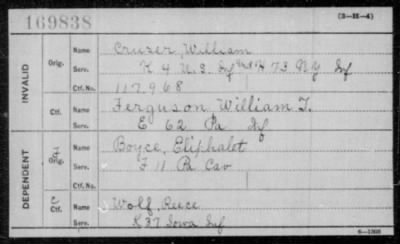 169838
(3—IE—4)
INVALID
Orig.
Name Cruser, William
Serv. K 4 U.S. Inf H 73 NY Inf
Ctf. No. 117.968
Ctf.
Name Ferguson William T.
Serv. E 62 Pa Inf
DEPENDENT
Orig.
Name Boyce, Eliphalet
Serv. F 11 Pa Cav
Ctf. No.
C
Ctf.
Name Wolf, Reece
Serv. K 37 Iowa Inf